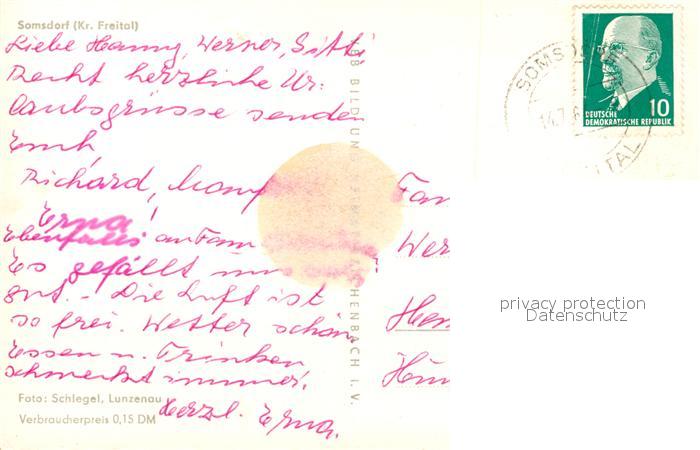 Somsdorf (Kr. Freital)
Liebe Hanny, Werner, Gitti
Recht herzliche Ur-
laubsgrüsse sendet
Euch
Richard,
Erna!
Ebenfalls an Fam
Es gefällt uns
gut. - Die Luft ist
so frei. Wetter schön
Essen u. Trinken
schmeckt immer.
Herzl. Erna.
Foto: Schlegel, Lunzenau
Verbraucherpreis 0,15 DM
BILD UN
CHENBACH I. V.
SOMS
14.7.
TAL
10
DEUTSCHE
DEMOKRATISCHE REPUBLIK
Fam
Wer
privacy protection
Datenschutz